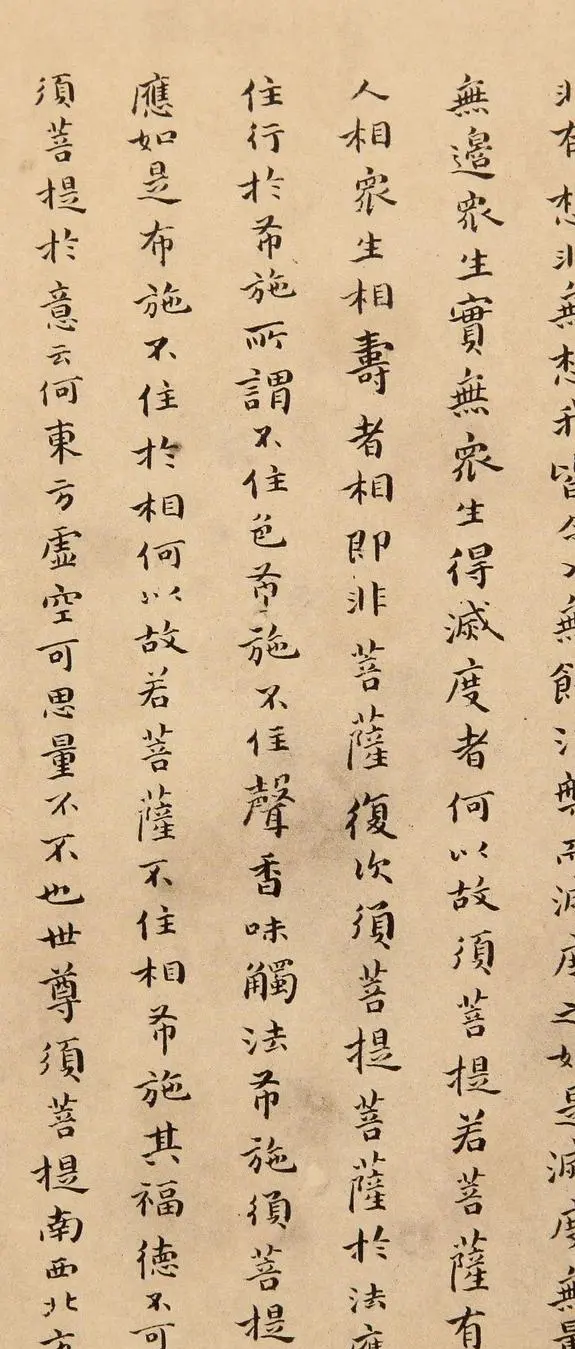 非有想非無想我皆令入無餘涅槃而滅度之如是滅度無量
無邊眾生實無眾生得滅度者何以故須菩提若菩薩有
人相眾生相壽者相即非菩薩復次須菩提菩薩於法應
住行於布施所謂不住色布施不住聲香味觸法布施須菩提
應如是布施不住於相何以故若菩薩不住相布施其福德不可
須菩提於意云何東方虛空可思量不不也世尊須菩提南西北方